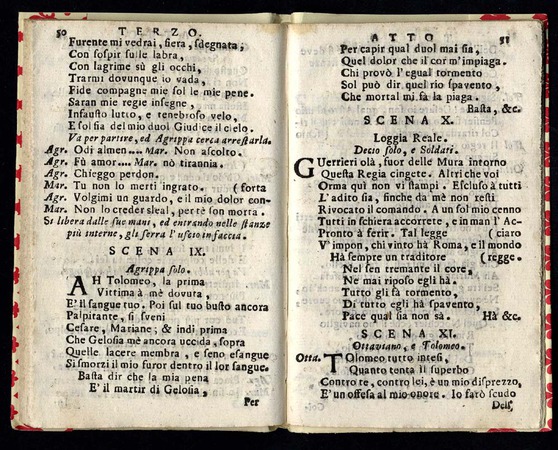 50 TERZO.
Furente mi vedrai, fiera, sdegnata,
Con sospir sulle labra,
Con lagrime sù gli occhi,
Trarmi dovunque io vada,
Fide compagne mie sol le mie pene.
Saran mie regie insegne,
Infausto lutto, e tenebroso velo,
E sol sia del mio duol Giudice il cielo.
Và per partire, ed Agrippa cerca arrestarla.
Agr. Odi almen.... Mar. Non ascolto.
Agr. Fù amor.... Mar. nò tirannia.
Agr. Chieggo perdon.
Mar. Tu non lo merti ingrato. (forta
Agr. Volgimi un guardo, e il mio dolor con-
Mar. Non lo creder sleal, per tè son morta.
Si libera dalle sue mani, ed entrando nelle stanze
più interne, gli serra l'uscio in faccia.
SCENA IX.
Agrippa solo.
AH Tolomeo, la prima
Vittima à mè dovuta,
E' il sangue tuo. Poi sul tuo busto ancora
Palpitante, si sveni
Cesare, Mariane; & indi prima
Che Gelosia mè ancora uccida, sopra
Quelle lacere membra, e seno esangue
Si smorzi il mio furor dentro il lor sangue.
Basta dir che la mia pena
E' il martir di Gelosia,
Per
ATTO 51
Per capir qual duol mai sia,
Quel dolor che il cor m'impiaga.
Chi provò l'egual tormento
Sol può dir quel rio spavento,
Che mortal mi fà la piaga.
Basta, &c.
SCENA X.
Loggia Reale.
Decio solo, e Soldati.
GUerrieri olà, fuor delle Mura intorno
Questa Regia cingete. Altri che voi
Orma quì non vi stampi. Escluso à tutti
L'adito sia, finche da mè non resti
Rivocato il comando. A un sol mio cenno
Tutti in schiera accorrete, e in man l'Ac-
Pronto à ferir. Tal legge (ciaro
V'impon, chi vinto hà Roma, e il mondo
Hà sempre un traditore (regge.
Nel sen tremante il core,
Ne mai riposo egli hà.
Tutto gli fà tormento,
Di tutto egli hà spavento,
Pace qual sia non sà. Hà &c.
SCENA XI.
Ottaviano, e Tolomeo.
Otta. TOlomeo tutto intesi,
Quanto tenta il superbo
Contro te, contro lei, è un mio disprezzo,
E' un offesa al mio onore. Io farò scudo
Dell'